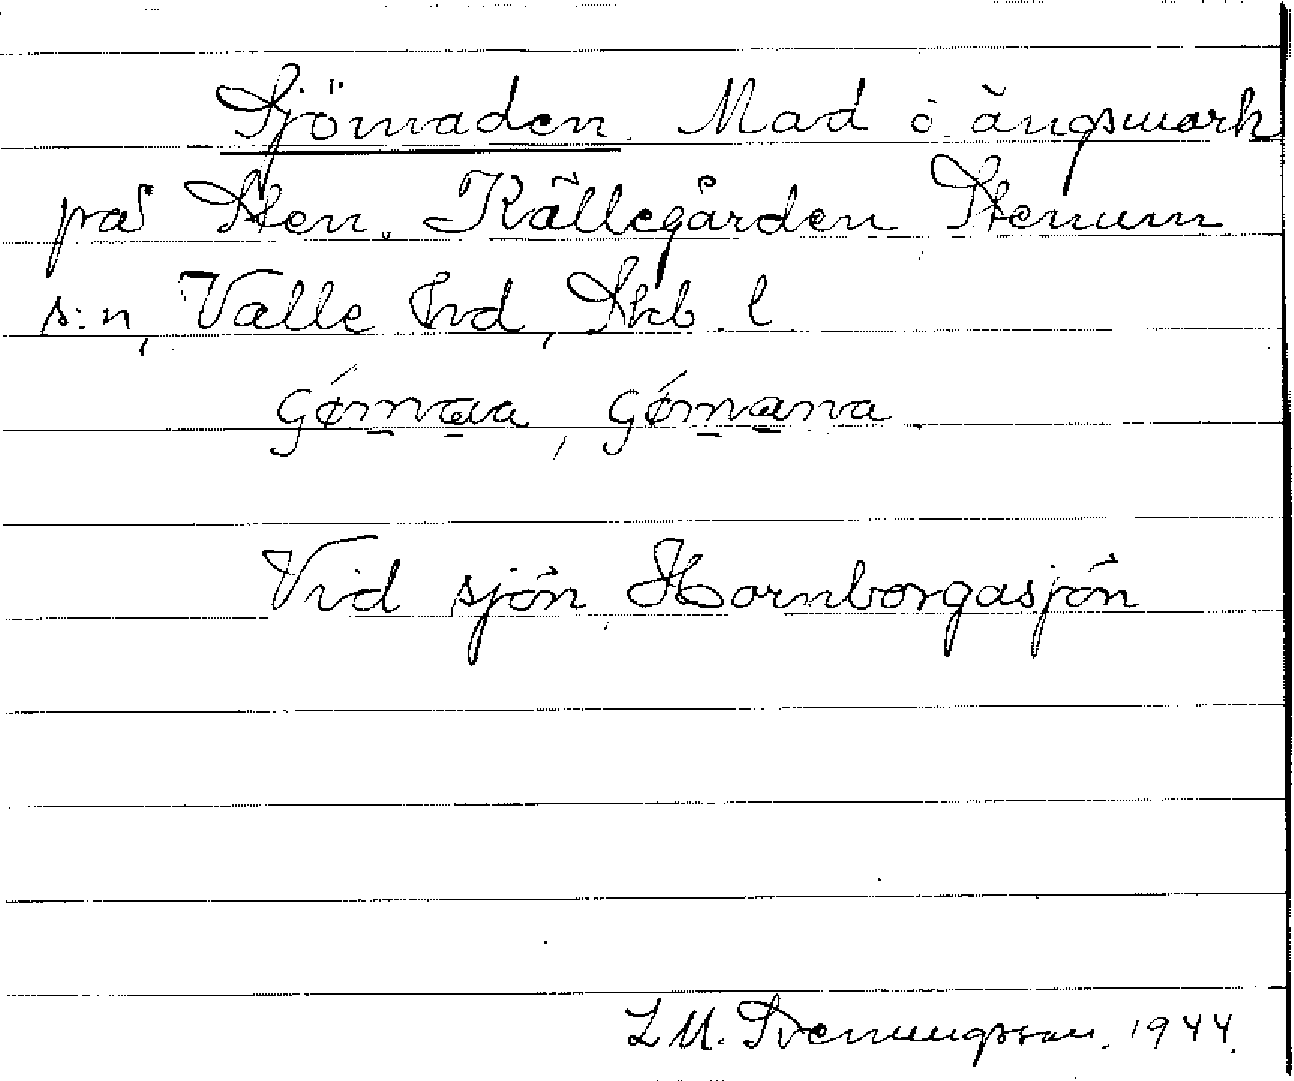 Sjömaden. Mad o. ängsmark
på Sten. Källegården Stenum
s:n, Valle hd, Skb. l.
Vid sjön Hornborgasjön
L M. Svenungsson. 1944.